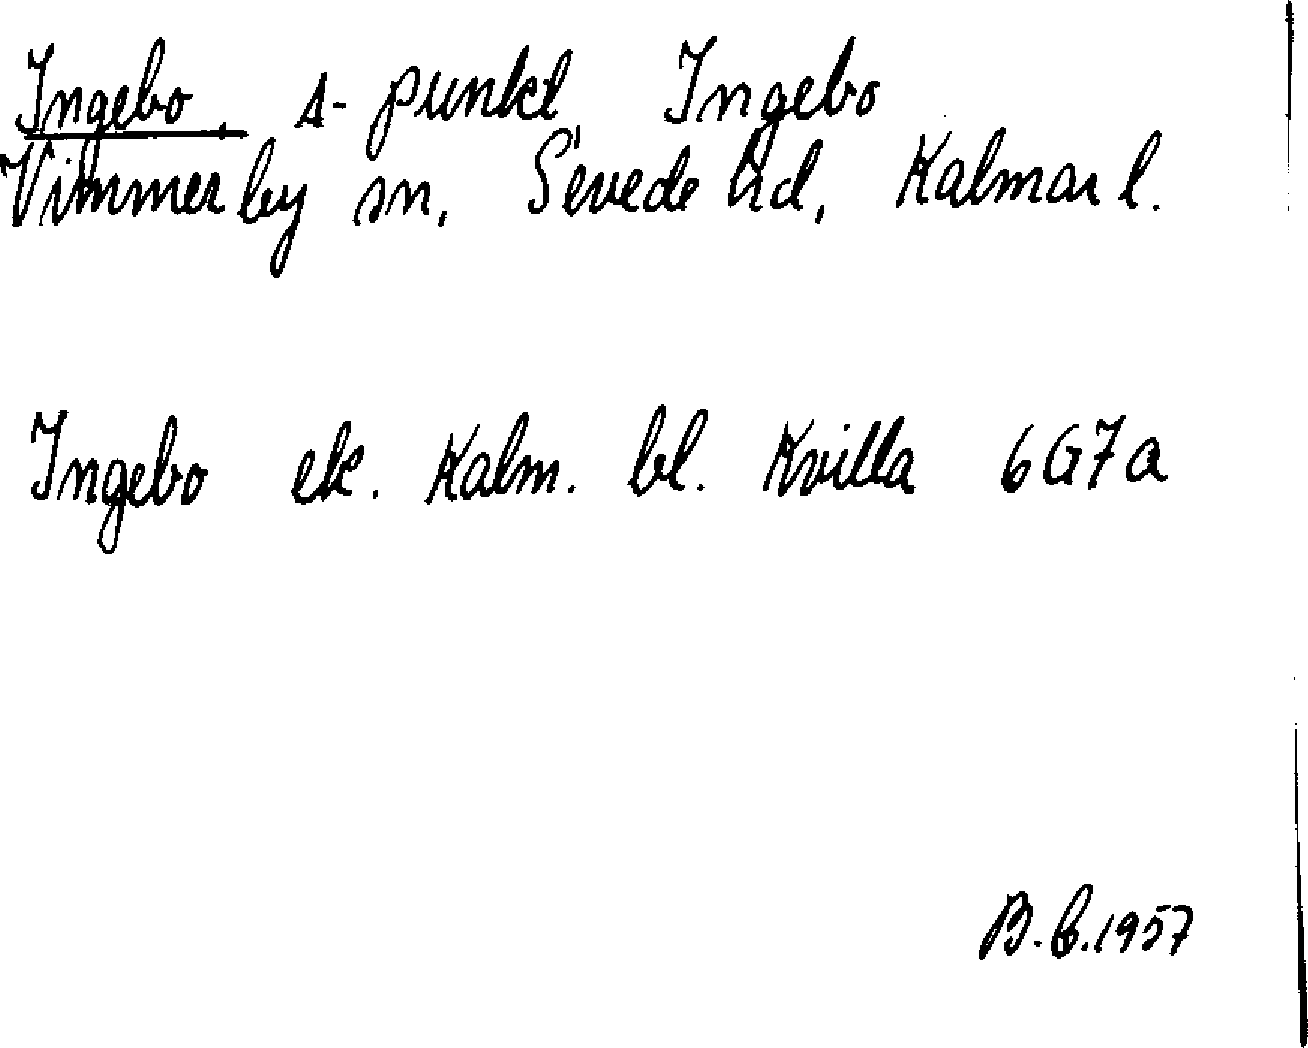 Ingebo, s-punkt Ingebo
Vimmerby sn, Sevede hd, Kalmar l.
Ingebo ek. Kalm. bl. Kvilla 6G7a
1957